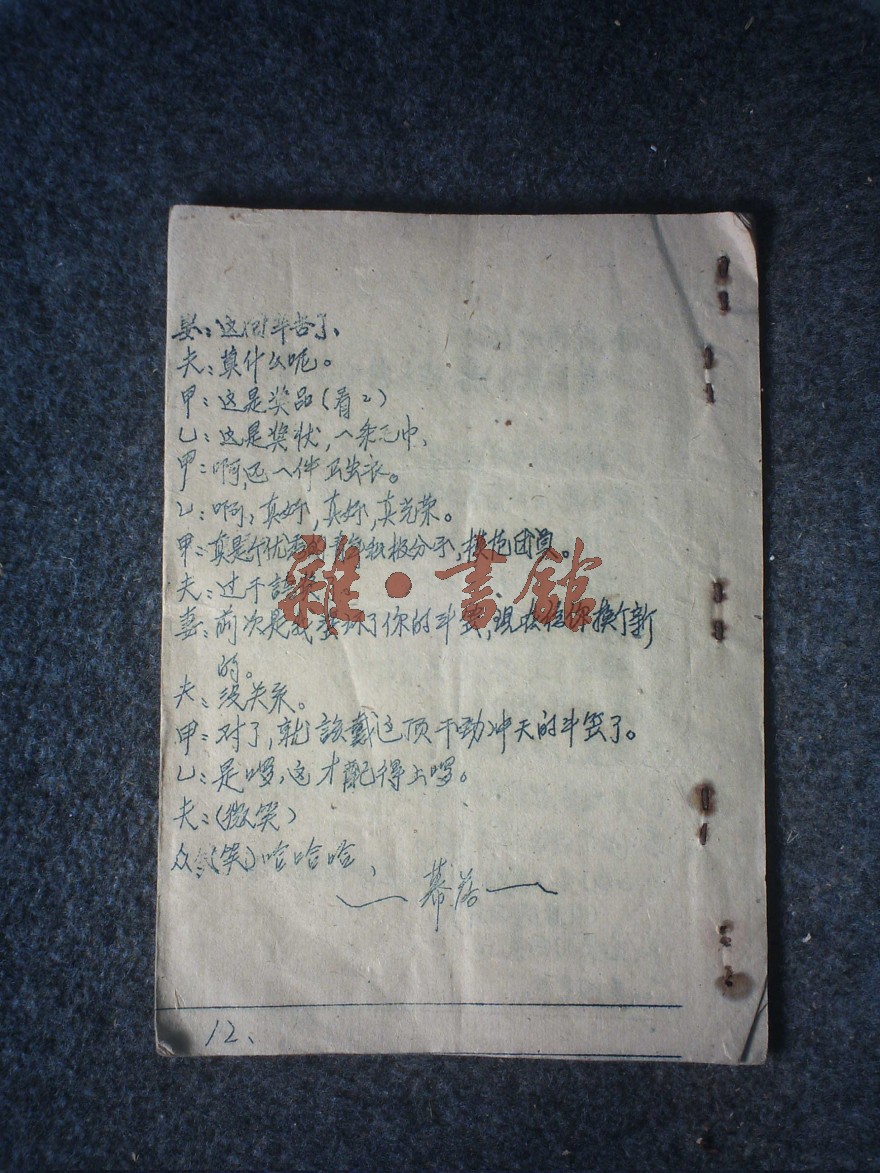 妻：这回辛苦了、
夫：莫什么呢。
甲：这是奖品（看々）
乙：这是奖状，
甲：啊，还一件卫生衣。
乙：啊，真好，真好，真光荣。
甲：真是个优秀的青年积极分子，模范团员。
夫：过于
妻：前次是我 坏了你的斗笠，现 你换个新
的。
夫：没关系。
甲：对了，就該戴这顶干劲冲天的斗笠了。
乙：是啰，这才配得上啰。
夫：（微笑）
众：（笑）哈哈哈
幕落
12、
雜·書館